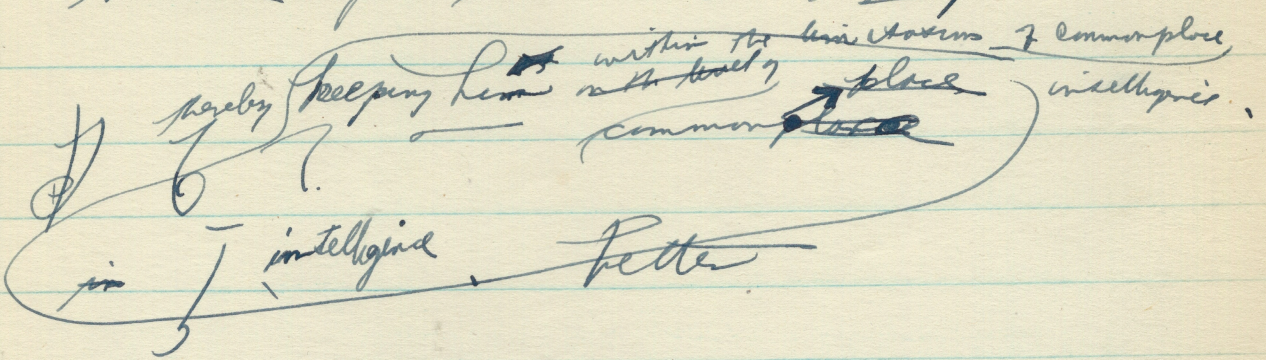 within the limitations of commonplace
thereby keeping him on the level of place intelligence.
commonplace
in intelligence. Better